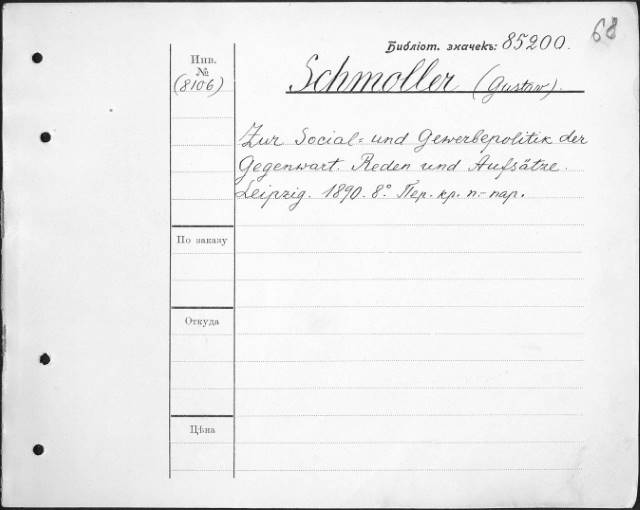 68
Библіот. значекъ: 85200.
Инв.
№
(8106)
Schmoller (Gustav).
Zur Social= und Gewerbepolitik der
Gegenwart. Reden und Aufsätze.
Leipzig. 1890. 8°. Пер. кр. п.-пар.
По заказу
Откуда
Цѣна